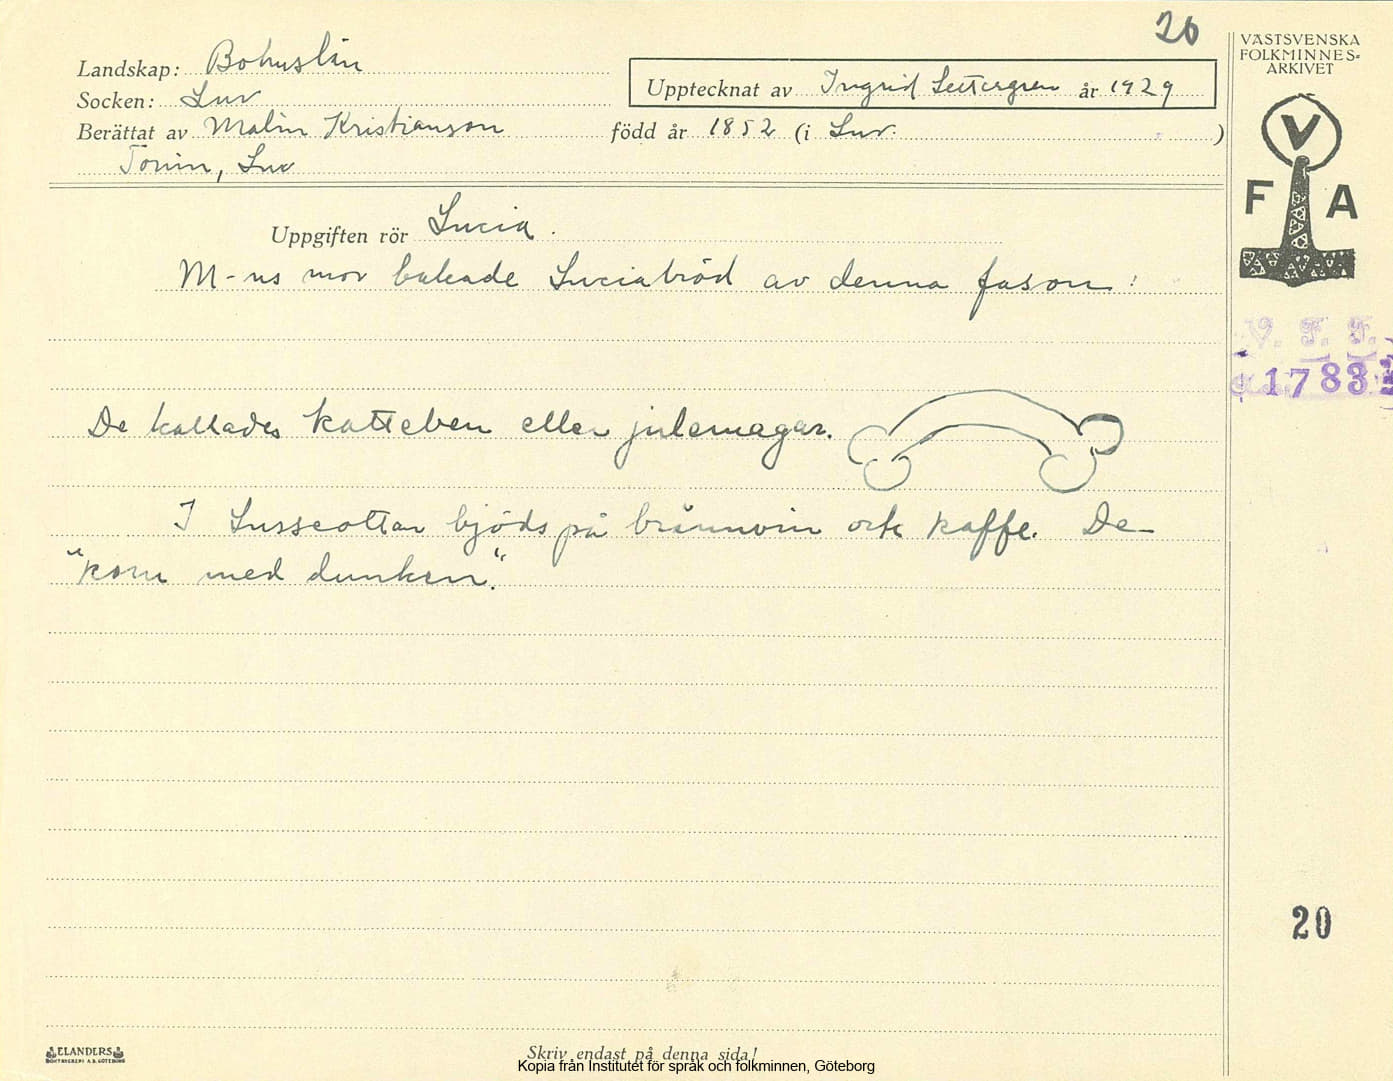 26
Landskap: Bohuslän
Socken: Lur
Upptecknat av Ingrid Settergren år 1929
Berättat av Malin Kristianson född år 1852 (i Lur. )
Torum, Lur
Uppgiften rör Lucia.
M-ns mor bakade Luciabröd av denna fason:
De kallades katteben eller julemagar.
I Lusseottan bjöds på brännvin och kaffe. De
"kom med dunken".
VÄSTSVENSKA
FOLKMINNES-
ARKIVET
V
F A
V. F. F.
1783
20
ELANDERS
BOKTRYCKERI A.B. GÖTEBORG
Skriv endast på denna sida!
Kopia från Institutet för språk och folkminnen, Göteborg